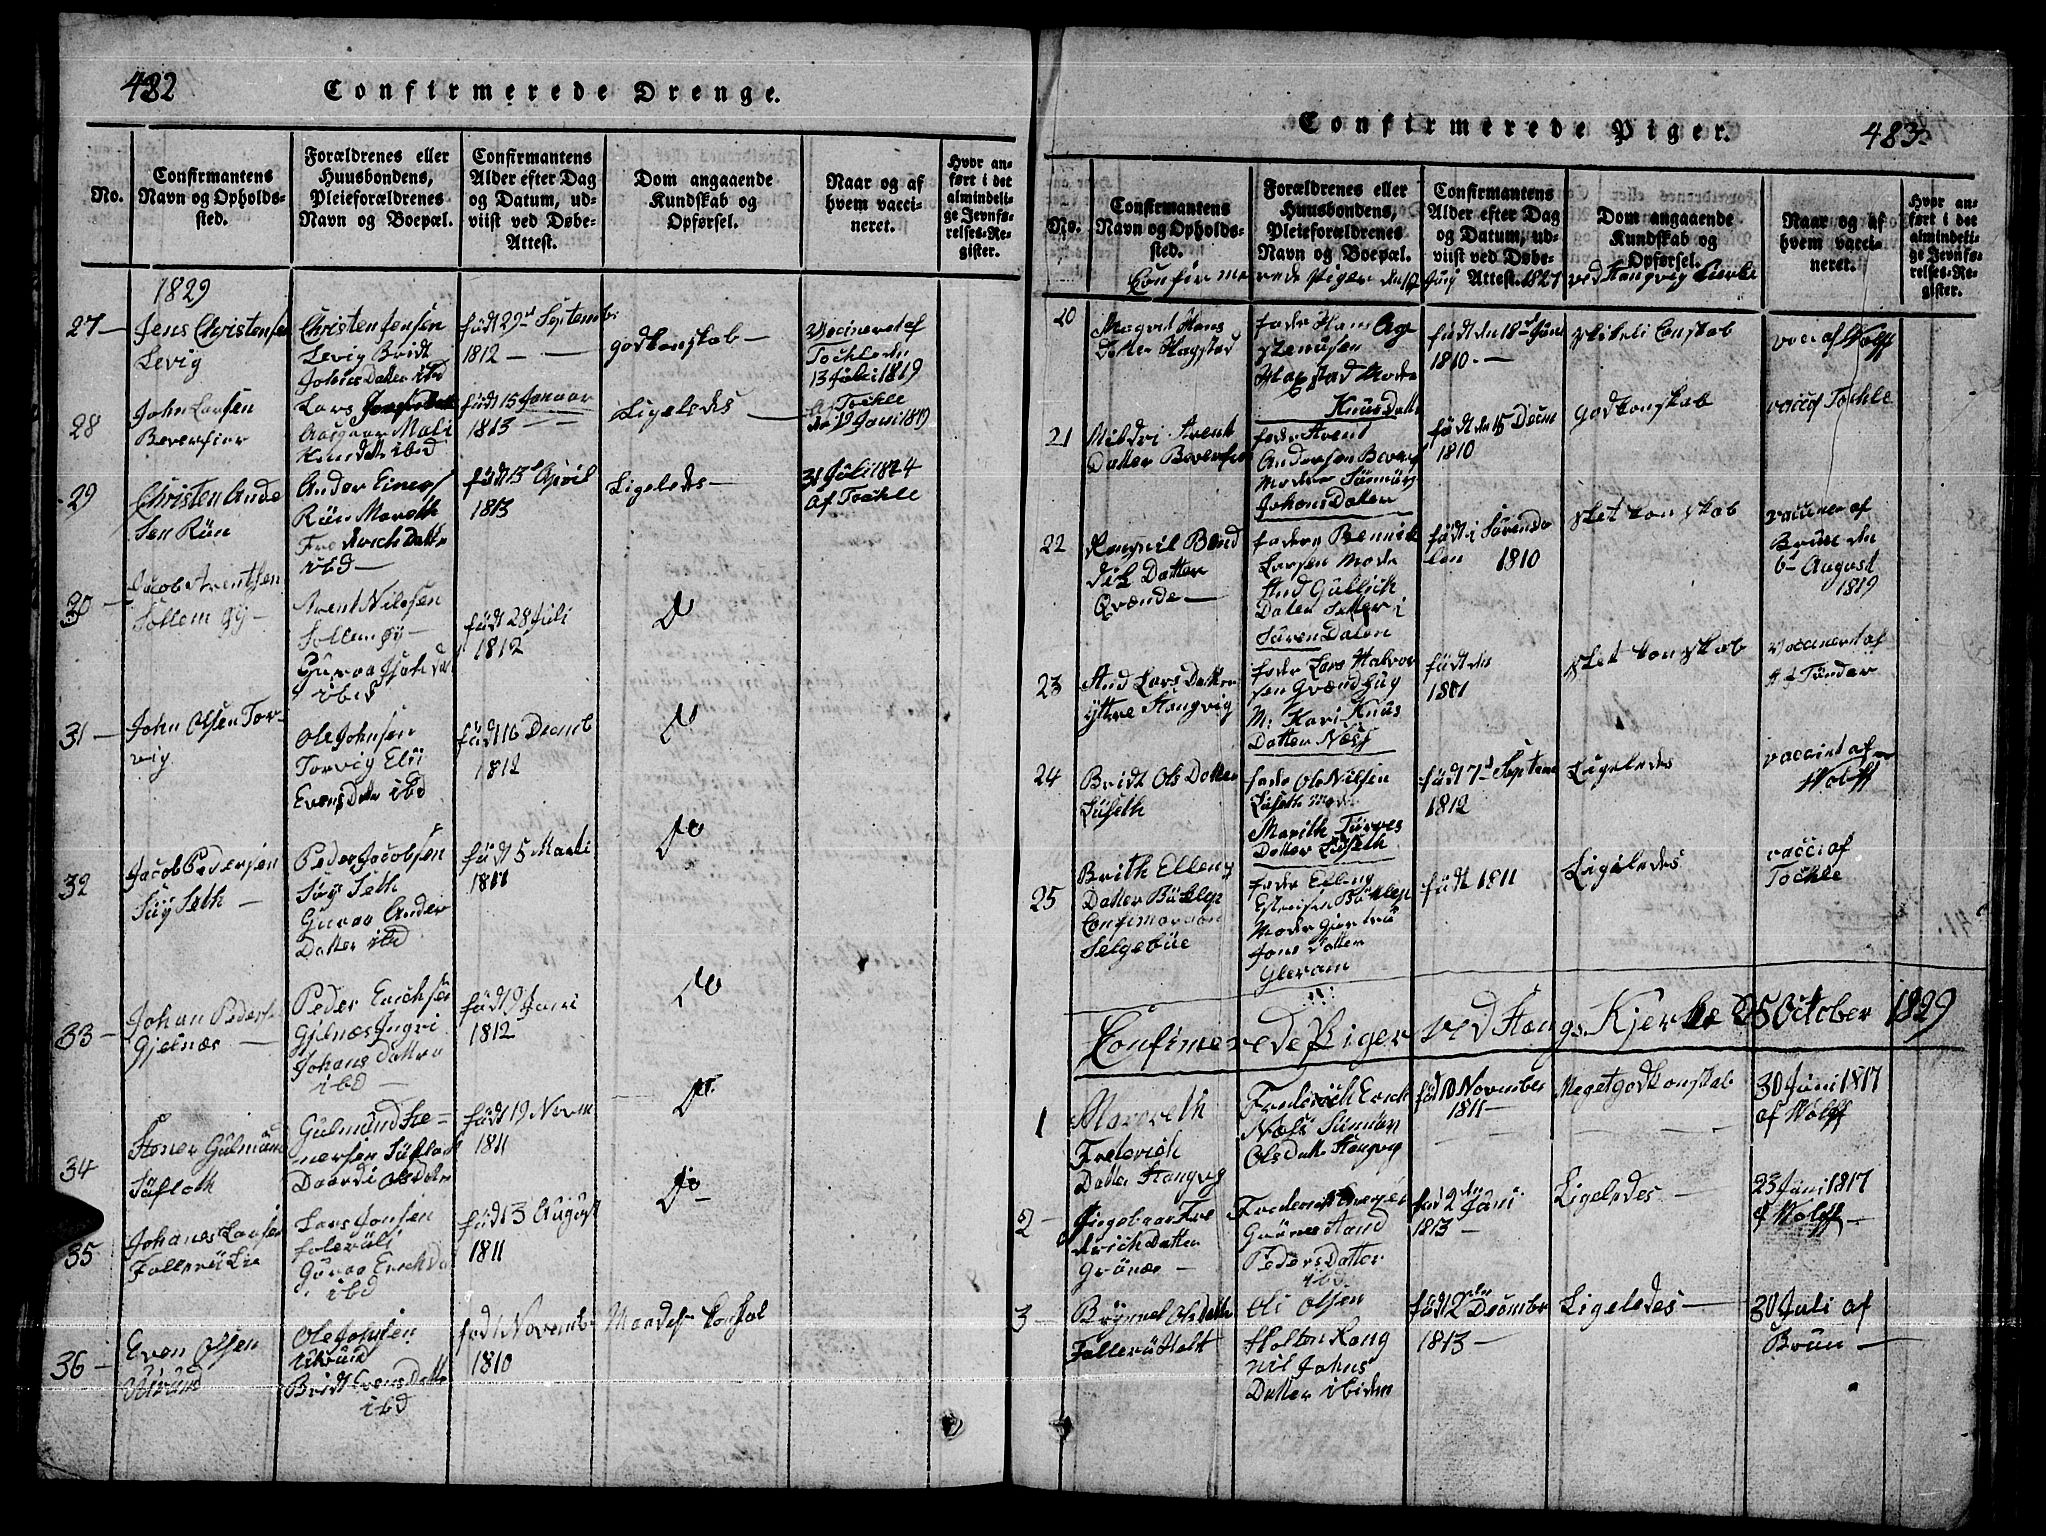 482
Confirmerede Drenge.
No.
Confirmantens
Navn og Opholds-
sted.
Forældrenes eller
Huusbondens,
Pleieforældrenes
Navn og Boepæl.
Confirmantens
Alder efter Dag
og Datum, ud-
viist ved Døbe-
Attest.
Dom angaaende
Kundskab og
Opførsel.
Naar og af
hvem vacci-
neret.
Hvor an-
ført i det
almindeli-
ge Jevnfø-
relses-Re-
gister.
1829
27 —
Jens Christensen
Levig
Christen Jensen
Levig Bridt
Johnsdatter ibd
født 29de Septemb:
1812 —
god konskab —
Vaccineret af
Tochle dn
13 Juli 1819
28
John Larsen
Beverfior
Lars
Aasgaar Mali
ibd
født 15 Januar
1813 —
Ligeledes —
Af Tochle
dn 19 Juni 1819
29
Christen Ande
sen Rün
Ander Einers
Rün Mareth
Fredrich Datter
ibd —
født 13de April
1813
Ligeledes —
31 Juli 1824
Af Tochle
30 —
Jacob Arentsen
Sollem Øy —
Arent Nilssen
Sollem Øy —
Guroe
ibd
født 28 Juli
1812
Do
31 —
John Olsen Tor-
vig
Ole Johnsen
Torvig Eli
Evensdatter ibd
født 16 Decemb
1812
Do
32
Jacob Pedersen
Süy Seth —
Peder Jacobsen
Süy Seth
Guroe Ander
Datter ibd
født 5 Marti
1811
Do
33 —
Johan Peders
Gjelnæs —
Peder Erichsen
Gjelnæs Ingri
Johans Datter
ibd —
født 9 Juni
1812
Do
34
Stener Gulmund
Süfloth
Gulmund Ste-
nersen Süflot
Daardi Olsdater
født 19 Novem
1811
Do
35
Johanes Larsen
Fallerülie
Lars Jonsen
Folerüli
Guroe Erichda
ibd
født 3 August
1811
Do —
36 —
Even Olsen
Ole Johnsen
Bridt Evensdatter
ibd
født Novemb
1810
Maadel: konskab
Confirmerede Piger.
483
No.
Confirmantens
Navn og Opholds-
sted.
Forældrenes eller
Huusbondens,
Pleieforældrenes
Navn og Boepæl.
Confirmantens
Alder efter Dag
og Datum, ud-
viist ved Døbe-
Attest.
Dom angaaende
Kundskab og
Opførsel.
Naar og af
hvem vacci-
neret.
Hvor an-
ført i det
almindeli-
ge Jevnfø-
relses-Re-
gister.
Confirmerede Piger den Juni 1827 ved Stangvig Kierke
20
Magrit Hans
Datter Hagstad
fader Hans Ag
stenusen
Hagstad Moder
Knus Datter
født den 18de Juni
1810 —
skikeli Conskab
vaci af Wolff
21
Mildri Arent
Datter Beverfior
fader Arent
Andersen Bever
Moder Sünnüv
Johans Dater
født den 15 Decem
1810
god konskab
vacci Tochle
22
Rangnil Bend
dich Datter
Qvænde —
fader Bennik
Larsen Mode
And Gullich
Dater Setter i
Süren Dalen
født i Sürenda
len 1810
slet konskab
vacciner af
Brun den
6 — August
1819
23
And Lars Datter
yttre Stangvig
fader Lars Halvor
sen Grændhug
M: Kari Knus
Datter Næss
født den
1811
slet konskab
Vaccinert af
H f Tønder
24
Bridt Ols Datter
Lüseth
fader Ole Nilsen
Lüseth Moder
Marith Türres
Datter Lüseth
født 7de Septem
1812
Ligeledes
vaccinet af
Wolff
25
Brith Elleng
Datter Böklep
Confimeret
Selgebüe
fader Elling
Böklep
Moder Giertru
Jons Datter
Gleram
født 1811
Ligeledes
vacci af
Tochle
Confimerede Piger ved Stangs. Kjerke 25 October 1829
1
Mareth
Frederich
Datter Stangvig
Frederich Erich
Næss Sünnüv
Olsdatter Stangvig
fød 10 November
1811 —
Meget god konskab
30 Juni 1817
af Wolff
2 —
Ingebaar Fre
drich Datter
Grönæs —
Frederich
Grönes And
Peders Datter
ibd
fød 2den Juni
1813 —
Ligeledes —
23 Juni 1817
af Wolff —
3
Brynnel Olsdatter
Fallerü Holt
Oli Olsen
Holten Rang
nil Johns
Datter ibidem
fød 12den Decembr
1813 —
Ligeledes —
30 Juli af
Brün —